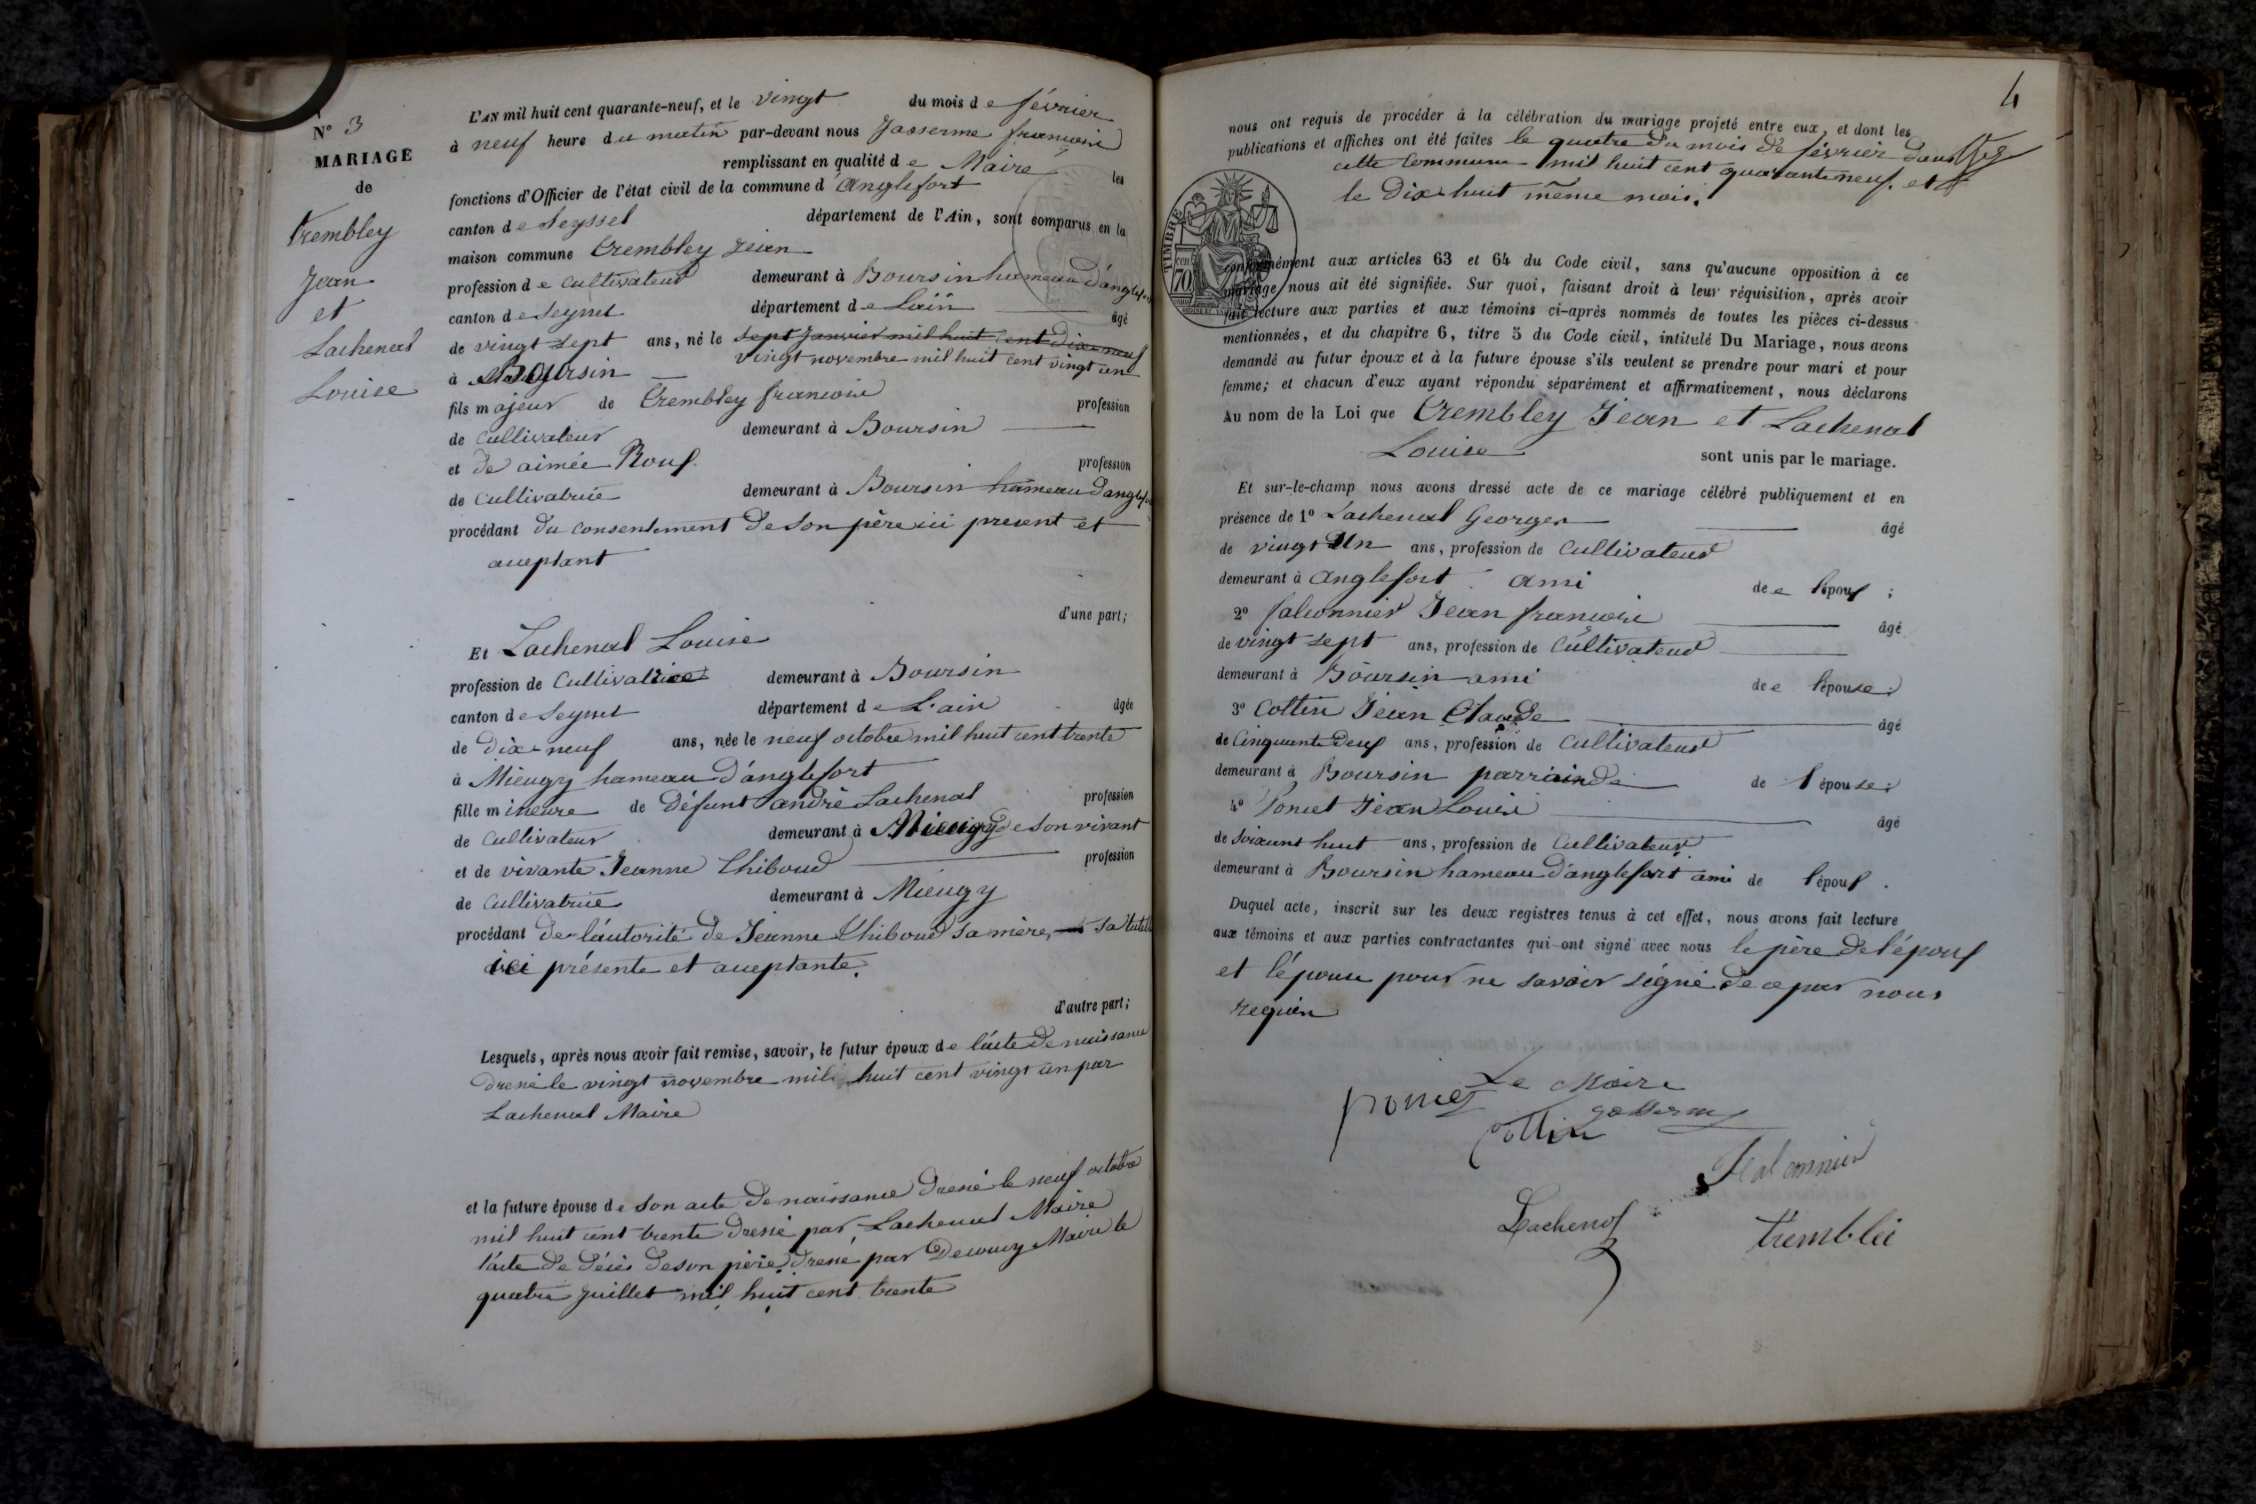 N° 3
MARIAGE
de
Trembley
Jean
et
Lachenal
Louise
L'AN mil huit cent quarante-neuf, et le vingt du mois de février
à neuf heure du matin par-devant nous Jasserme francois
remplissant en qualité de Maire les
fonctions d'Officier de l'état civil de la commune d'anglefort
canton de Seyssel département de l'Ain, sont comparus en la
maison commune Trembley Jean
profession de cultivateur demeurant à Boursin hameau d'anglefort
canton de Seyssel département de L'ain âgé
de vingt sept ans, né le sept Janvier mil huit cent dix neuf
vingt novembre mil huit cent vingt un
à Boursin
fils majeur de Trembley francois profession
de cultivateur demeurant à Boursin
et de aimée Rouf profession
de cultivatrice demeurant à Boursin hameau d'anglefort
procédant du consentement de son père ici present et
acceptant
d'une part;
Et Lachenal Louise
profession de cultivatrice demeurant à Boursin
canton de Seyssel département de L'ain âgée
de dix-neuf ans, née le neuf octobre mil huit cent trente
à Mieugy hameau d'anglefort
fille mineure de défunt andré Lachenal profession
de cultivateur demeurant à Mieugy de son vivant
et de vivante Jeanne Thiboud profession
de cultivatrice demeurant à Mieugy
procédant de l'autorité de Jeanne Thiboud sa mère, sa tutelle
ici présente et acceptante.
d'autre part;
Lesquels, après nous avoir fait remise, savoir, le futur époux de l'acte de naissance
dressé le vingt novembre mil huit cent vingt un par
Lachenal Maire
et la future épouse de son acte de naissance dressé le neuf octobre
mil huit cent trente dressé par Lachenal Maire
l'acte de décès de son père dressé par Decouz Maire le
quatre juillet mil huit cent trente
4
nous ont requis de procéder à la célébration du mariage projeté entre eux, et dont les
publications et affiches ont été faites le quatre du mois de février dans
cette commune mil huit cent quarante neuf. et
le Dix-huit même mois.
TIMBRE
70
conformément aux articles 63 et 64 du Code civil, sans qu'aucune opposition à ce
mariage nous ait été signifiée. Sur quoi, faisant droit à leur réquisition, après avoir
fait lecture aux parties et aux témoins ci-après nommés de toutes les pièces ci-dessus
mentionnées, et du chapitre 6, titre 5 du Code civil, intitulé Du Mariage, nous avons
demandé au futur époux et à la future épouse s'ils veulent se prendre pour mari et pour
femme; et chacun d'eux ayant répondu séparément et affirmativement, nous déclarons
Au nom de la Loi que Trembley Jean et Lachenal
Louise sont unis par le mariage.
Et sur-le-champ nous avons dressé acte de ce mariage célébré publiquement et en
présence de 1° Lachenal Georges âgé
de vingt un ans, profession de cultivateur
demeurant à anglefort ami de e l'épouf ;
2° falconnier Jean francois âgé
de vingt sept ans, profession de cultivateur
demeurant à Boursin ami de e l'épouse;
3° Cottin Jean Claude âgé
de cinquante deuf ans, profession de cultivateur
demeurant à Boursin parrain de de l'épouse;
4° Poncet Jean Louis âgé
de soixant huit ans, profession de cultivateur
demeurant à Boursin hameau d'anglefort ami de l'épouf.
Duquel acte, inscrit sur les deux registres tenus à cet effet, nous avons fait lecture
aux témoins et aux parties contractantes qui ont signé avec nous le père de l'épouf
et l'épouse pour ne savoir signé de ce par nous
requis
Le Maire
poncet
Jasserme
Cottin
Falconnier
Lachenal
tremblei